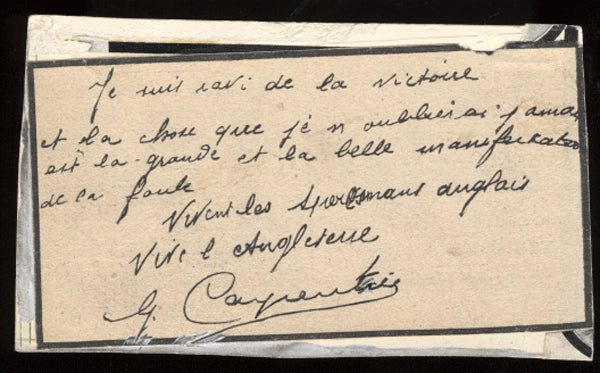 Je suis ravi de la victoire
et la chose que je n oublierai jamais
est la grande et la belle manifestation
de la foule
Vivent les sportsmans anglais
Vive l Angleterre
G. Carpentier